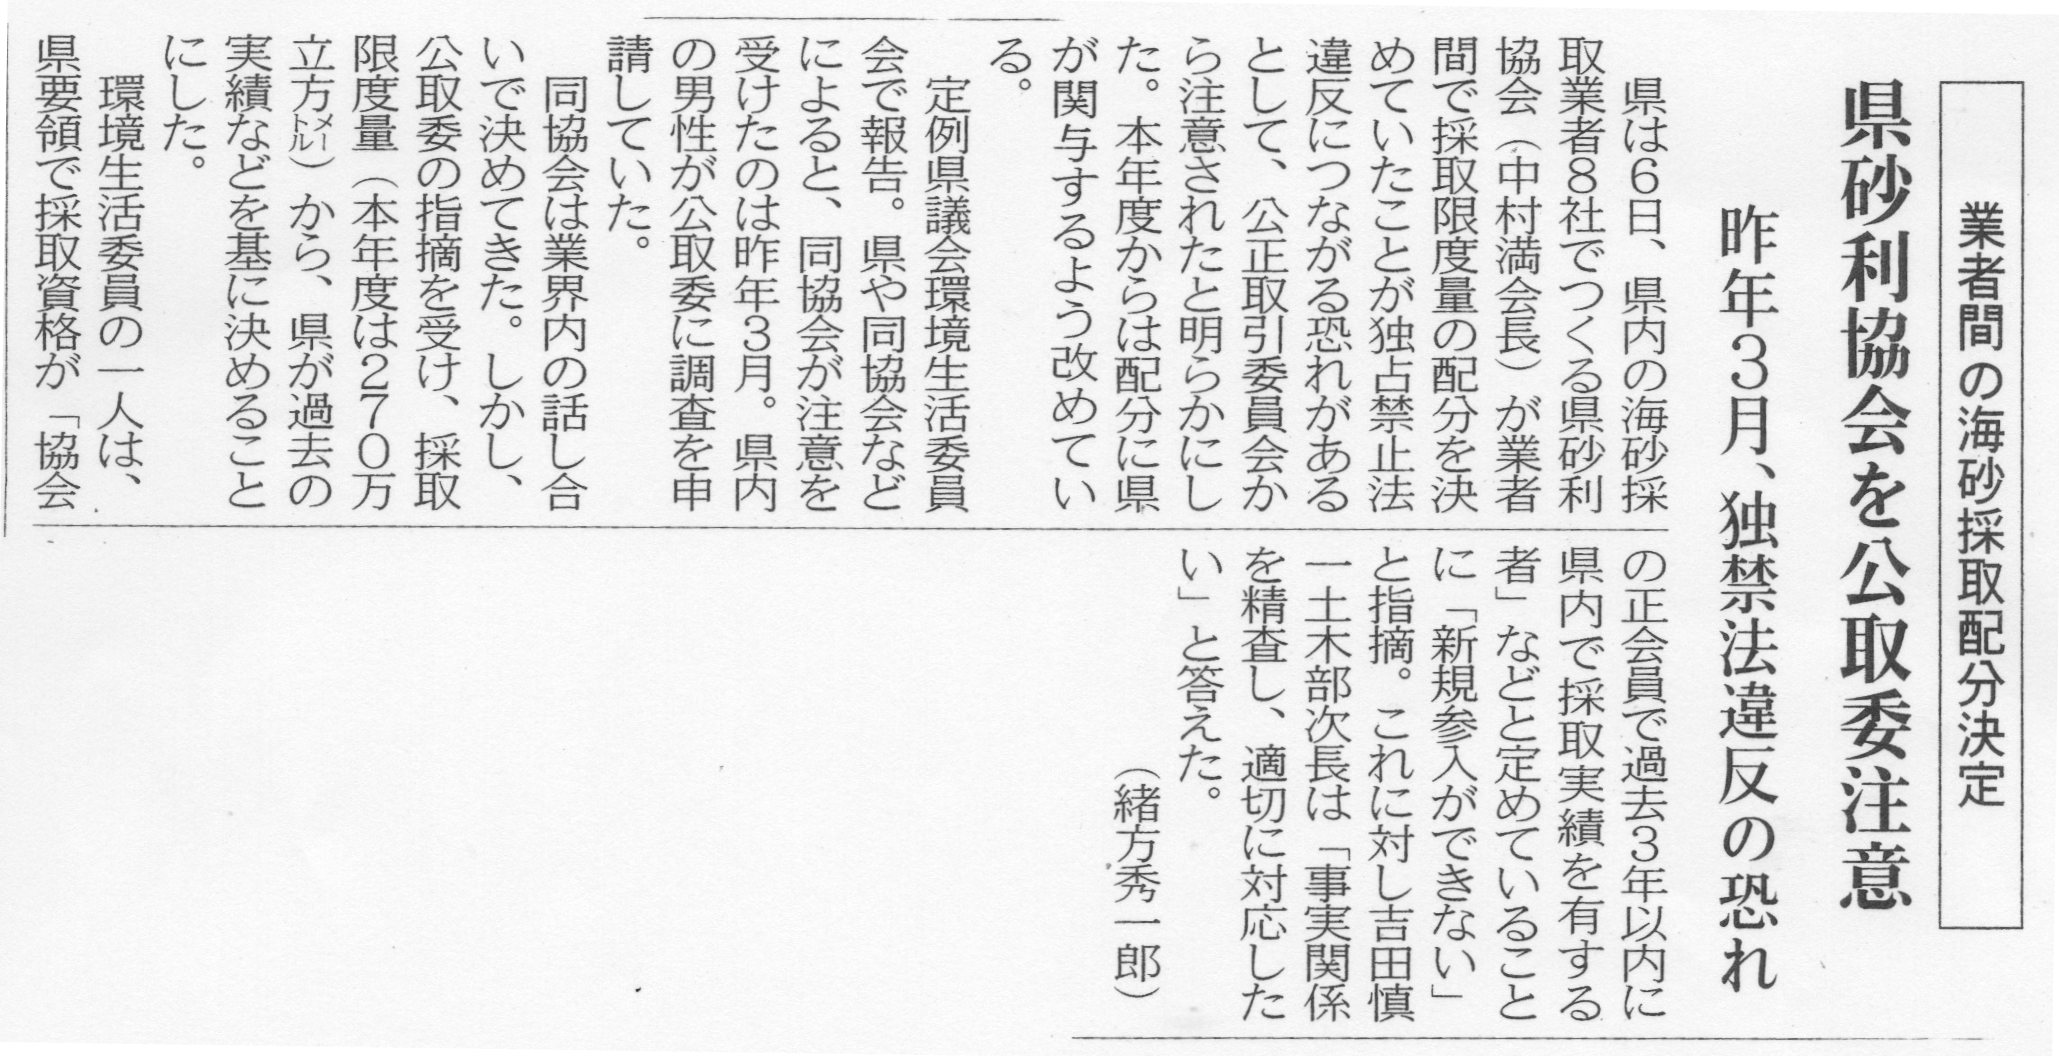 業者間の海砂採取配分決定
県砂利協会を公取委注意
昨年3月、独禁法違反の恐れ
県は6日、県内の海砂採
取業者8社でつくる県砂利
協会(中村満会長)が業者
間で採取限度量の配分を決
めていたことが独占禁止法
違反につながる恐れがある
として、公正取引委員会か
ら注意されたと明らかにし
た。本年度からは配分に県
が関与するよう改めてい
る。
定例県議会環境生活委員
会で報告。県や同協会など
によると、同協会が注意を
受けたのは昨年3月。県内
の男性が公取委に調査を申
請していた。
同協会は業界内の話し合
いで決めてきた。しかし、
公取委の指摘を受け、採取
限度量(本年度は270万
立方メートル)から、県が過去の
実績などを基に決めること
にした。
環境生活委員の一人は、
県要領で採取資格が「協会
の正会員で過去3年以内に
県内で採取実績を有する
者」などと定めていること
に「新規参入ができない」
と指摘。これに対し吉田慎
一土木部次長は「事実関係
を精査し、適切に対応した
い」と答えた。
(緒方秀一郎)